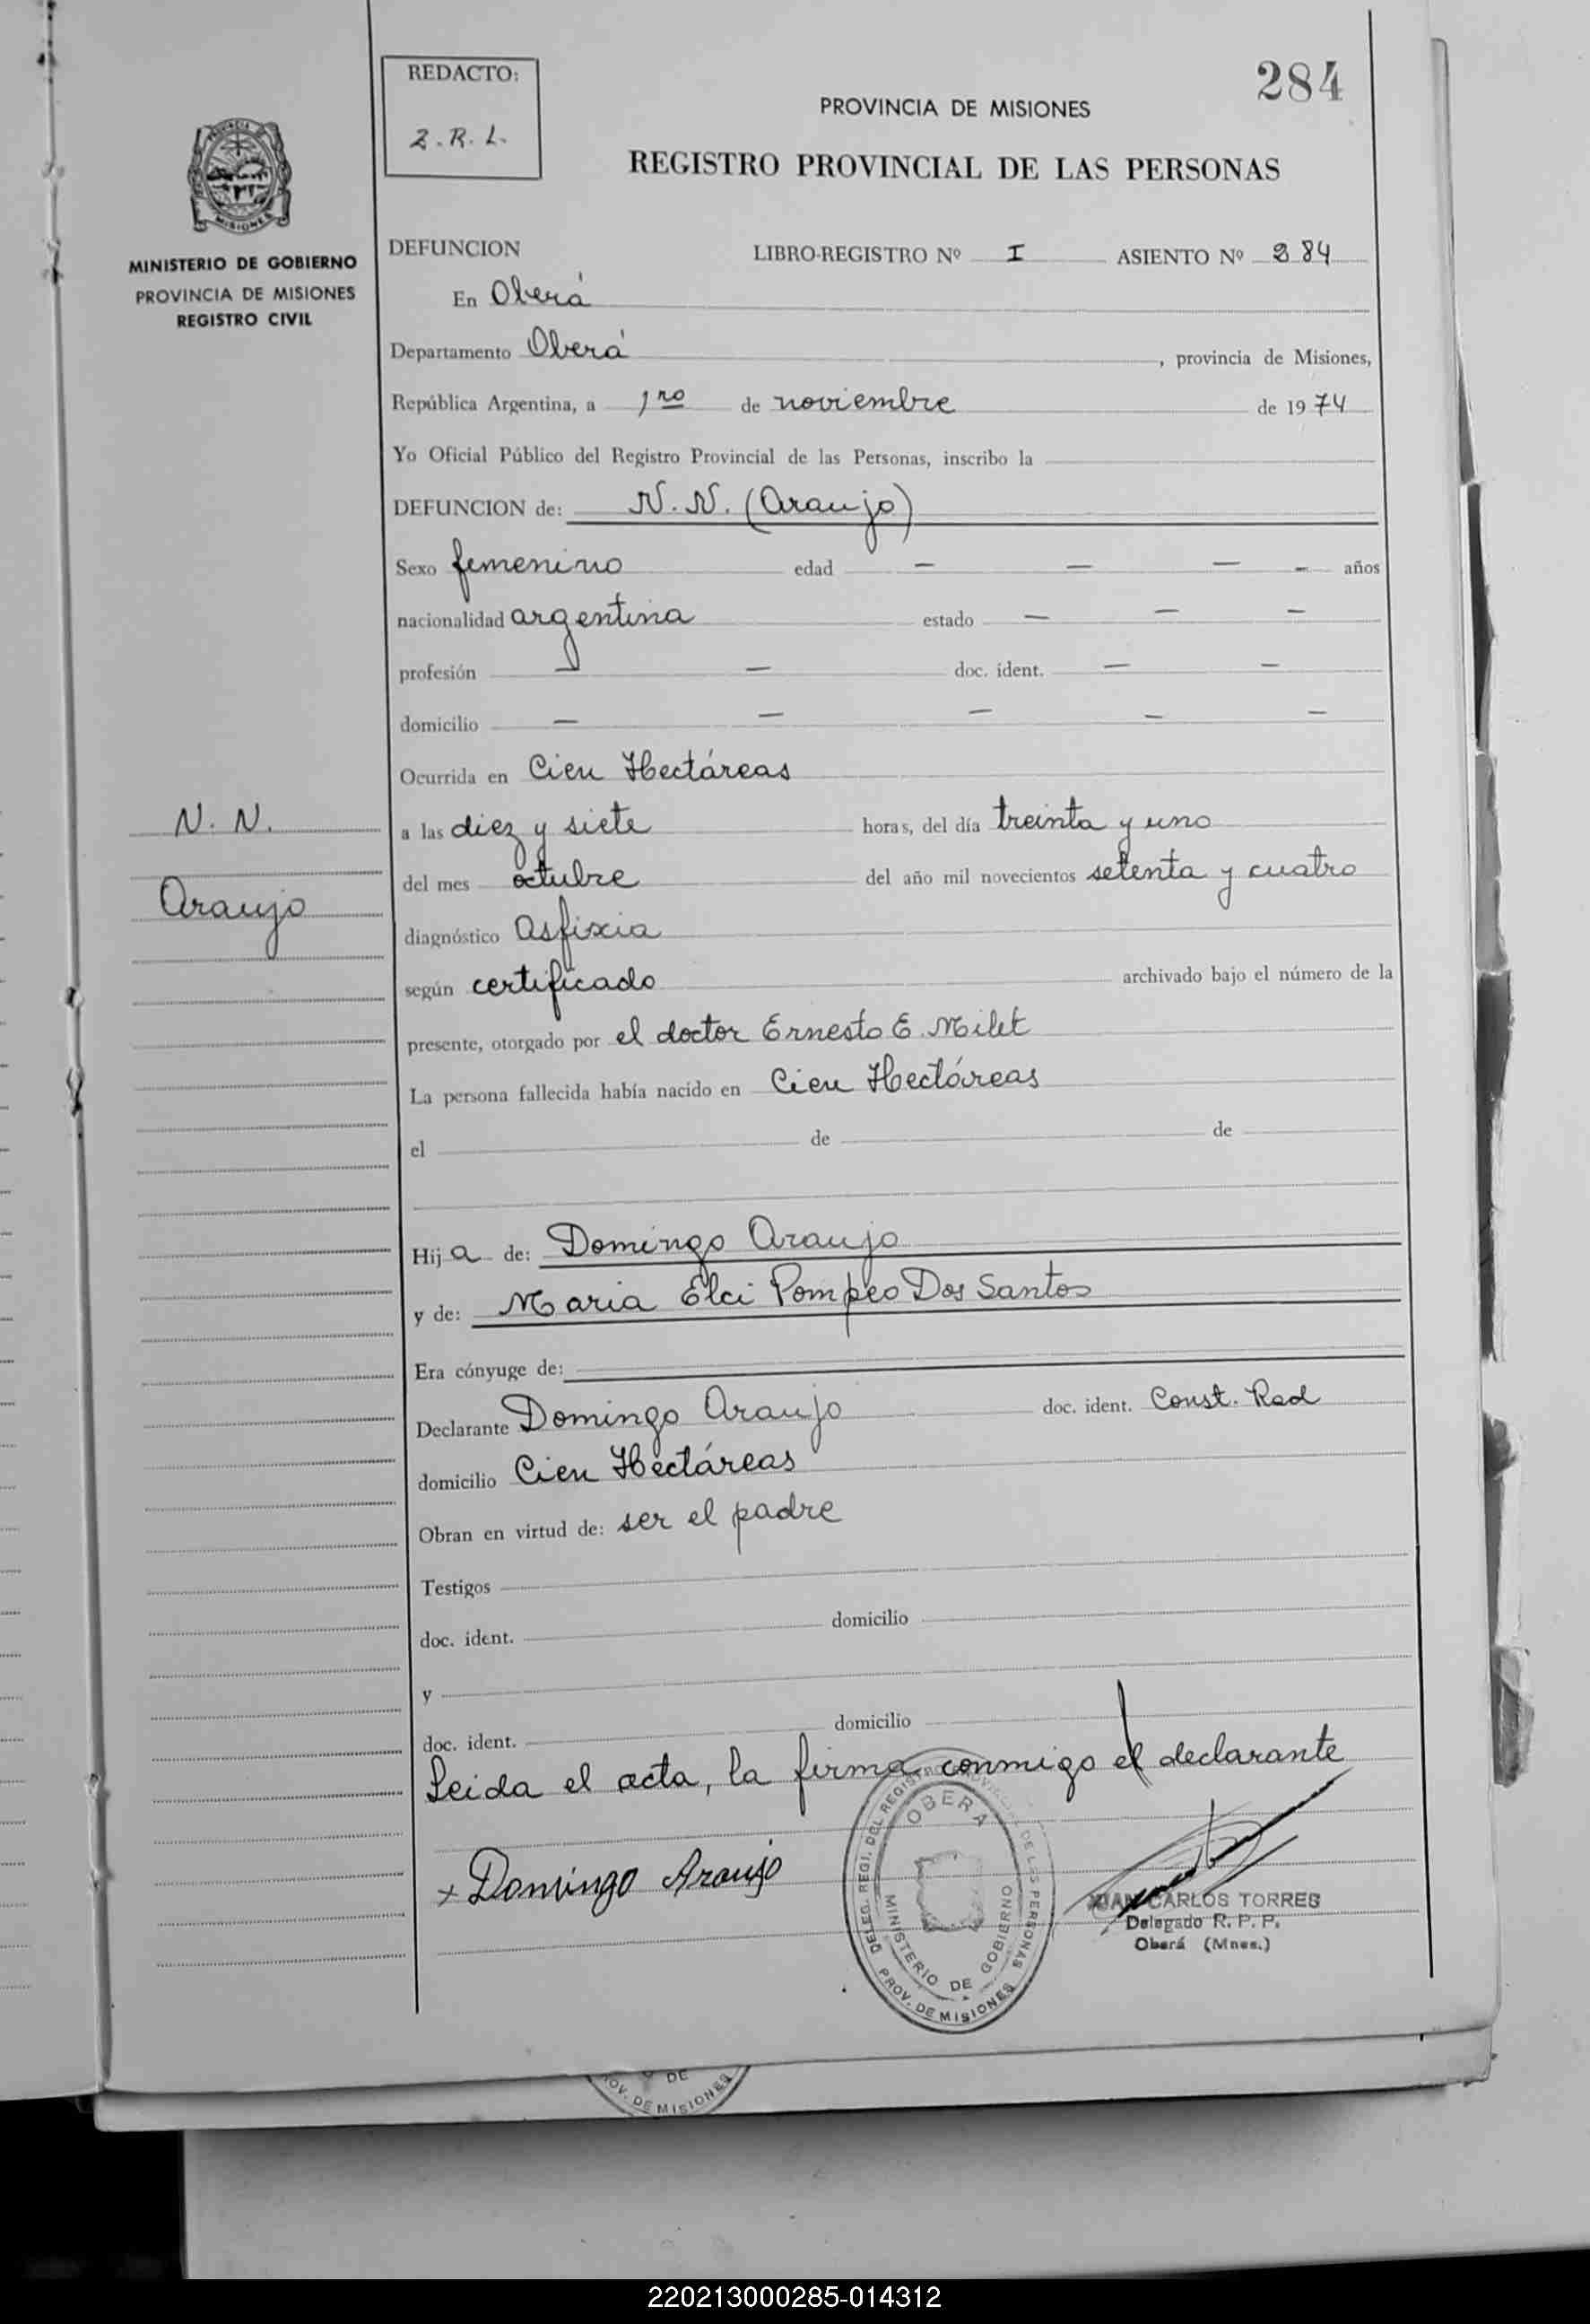 REDACTO:
Z.R.L.
284
PROVINCIA DE MISIONES
REGISTRO PROVINCIAL DE LAS PERSONAS
MISIONES
MINISTERIO DE GOBIERNO
PROVINCIA DE MISIONES
REGISTRO CIVIL
DEFUNCION LIBRO-REGISTRO Nº I ASIENTO Nº 284
En Oberá
Departamento Oberá, provincia de Misiones,
República Argentina, a 1ro de noviembre de 1974
Yo Oficial Público del Registro Provincial de las Personas, inscribo la
DEFUNCION de: N.N. (Araujo)
Sexo femenino edad — — — — años
nacionalidad argentina estado — — —
profesión — — doc. ident. — —
domicilio — — — — —
Ocurrida en Cien Hectáreas
N. N.
a las diez y siete horas, del día treinta y uno
del mes octubre del año mil novecientos setenta y cuatro
Araujo
diagnóstico Asfixia
según certificado archivado bajo el número de la
presente, otorgado por el doctor Ernesto E. Milet
La persona fallecida había nacido en Cien Hectáreas
el de de
Hija de: Domingo Araujo
y de: Maria Elci Pompeo Dos Santos
Era cónyuge de:
Declarante Domingo Araujo doc. ident. Const. Rad
domicilio Cien Hectáreas
Obran en virtud de: ser el padre
Testigos
doc. ident. domicilio
y
doc. ident. domicilio
Leida el acta, la firma conmigo el declarante
x Domingo Araujo
DELEG. REGI. DEL REGISTRO PROVINCIAL DE LAS PERSONAS
OBERA
MINISTERIO DE GOBIERNO
PROV. DE MISIONES
JUAN CARLOS TORRES
Delegado R. P. P.
Oberá (Mnes.)
DE
PROV. DE MISIONES
220213000285-014312